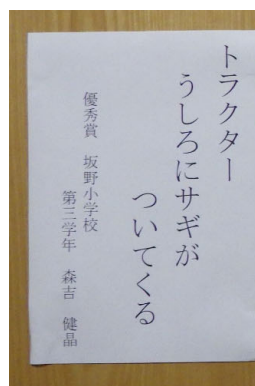 トラクター
うしろにサギが
ついてくる
優秀賞　坂野小学校
第三学年　森吉　健晶